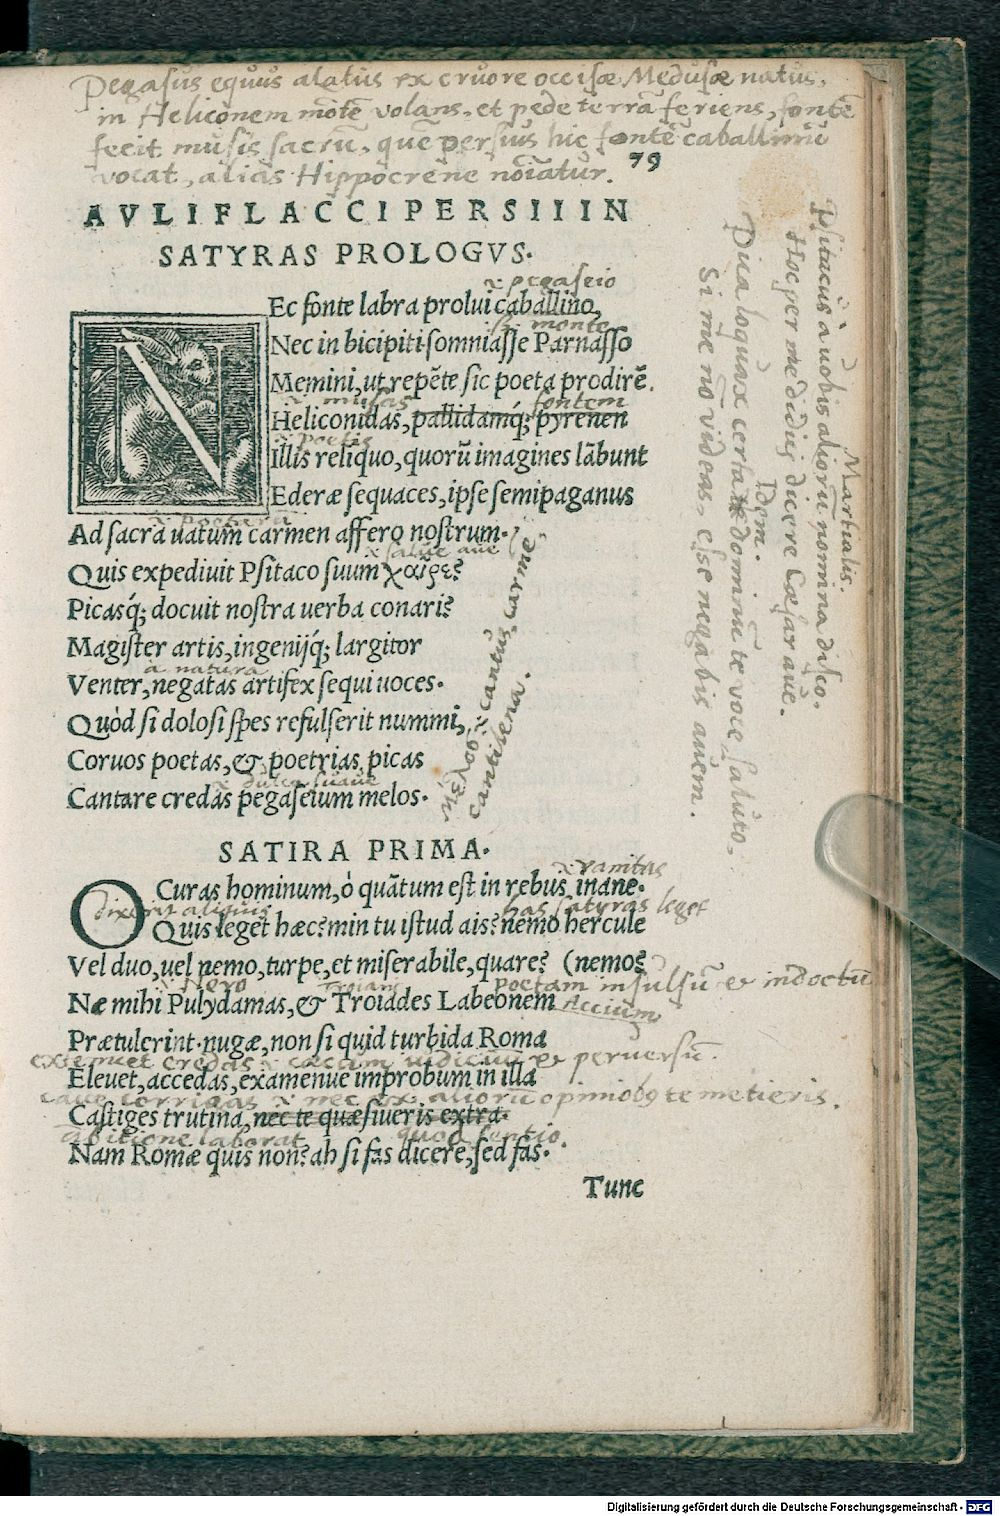 Pegasus equus alatus ex cruore occisæ Medusæ natus,
in Heliconem mōtē volans, et pede terrā feriens, fontē
fecit musis sacrū, quē persius hic fontē caballinū
vocat, alias Hippocrene nōīatur.
79
AVLI FLACCI PERSII IN
SATYRAS PROLOGVS.
.i. pegaseio
NEc fonte labra prolui caballino,
monte
Nec in bicipiti somniasse Parnasso
Memini, ut repēte sic poeta prodirē.
.i. musas fontem
Heliconidas, pallidamq́; pyrenen
.i. poetis
Illis reliquo, quorū imagines lābunt
Ederæ sequaces, ipse semipaganus
.i. poetarū
Ad sacra uatum carmen affero nostrum.
.i. salue aue
Quis expediuit Psitaco suum χαῖρε?
Picasq́; docuit nostra uerba conari?
Magister artis, ingenijq́; largitor
à natura
Venter, negatas artifex sequi uoces.
Quòd si dolosi spes refulserit nummi,
Coruos poetas, & poetrias picas
.i. dulce suaue
Cantare credas pegaseium melos.
μέλος .i. cantus, carmē,
cantilena.
Martialis.
Psitacus à uobis aliorū nomina disco.
Hoc per me didici dicere Cæsar aue.
Idem.
Pica loquax certa dominū te voce saluto.
Si me nō videas, esse negabis auem.
SATIRA PRIMA.
.i. vanitas
O Curas hominum, ò quātum est in rebus inane.
dixerit aliquis has satyras leget
Quis leget hæc? min tu istud ais? nemo hercule
Vel duo, uel nemo, turpe, et miserabile, quare? (nemo?
.i. Nero Troiani poetam insulsū & indoctū
Næ mihi Pulydamas, & Troiades Labeonem
Accium
Prætulerint. nugæ, non si quid turbida Roma
extenuet credas .i. &  perversū.
Eleuet, accedas, examenue improbum in illa
corrigas .i. nec ex aliorū opiniōbꝯ te metieris.
Castiges trutina, nec te quæsiueris extra.
ābitione laborat quod sentio.
Nam Romæ quis non? ah si fas dicere, sed fas.
Tunc
Digitalisierung gefördert durch die Deutsche Forschungsgemeinschaft - DFG